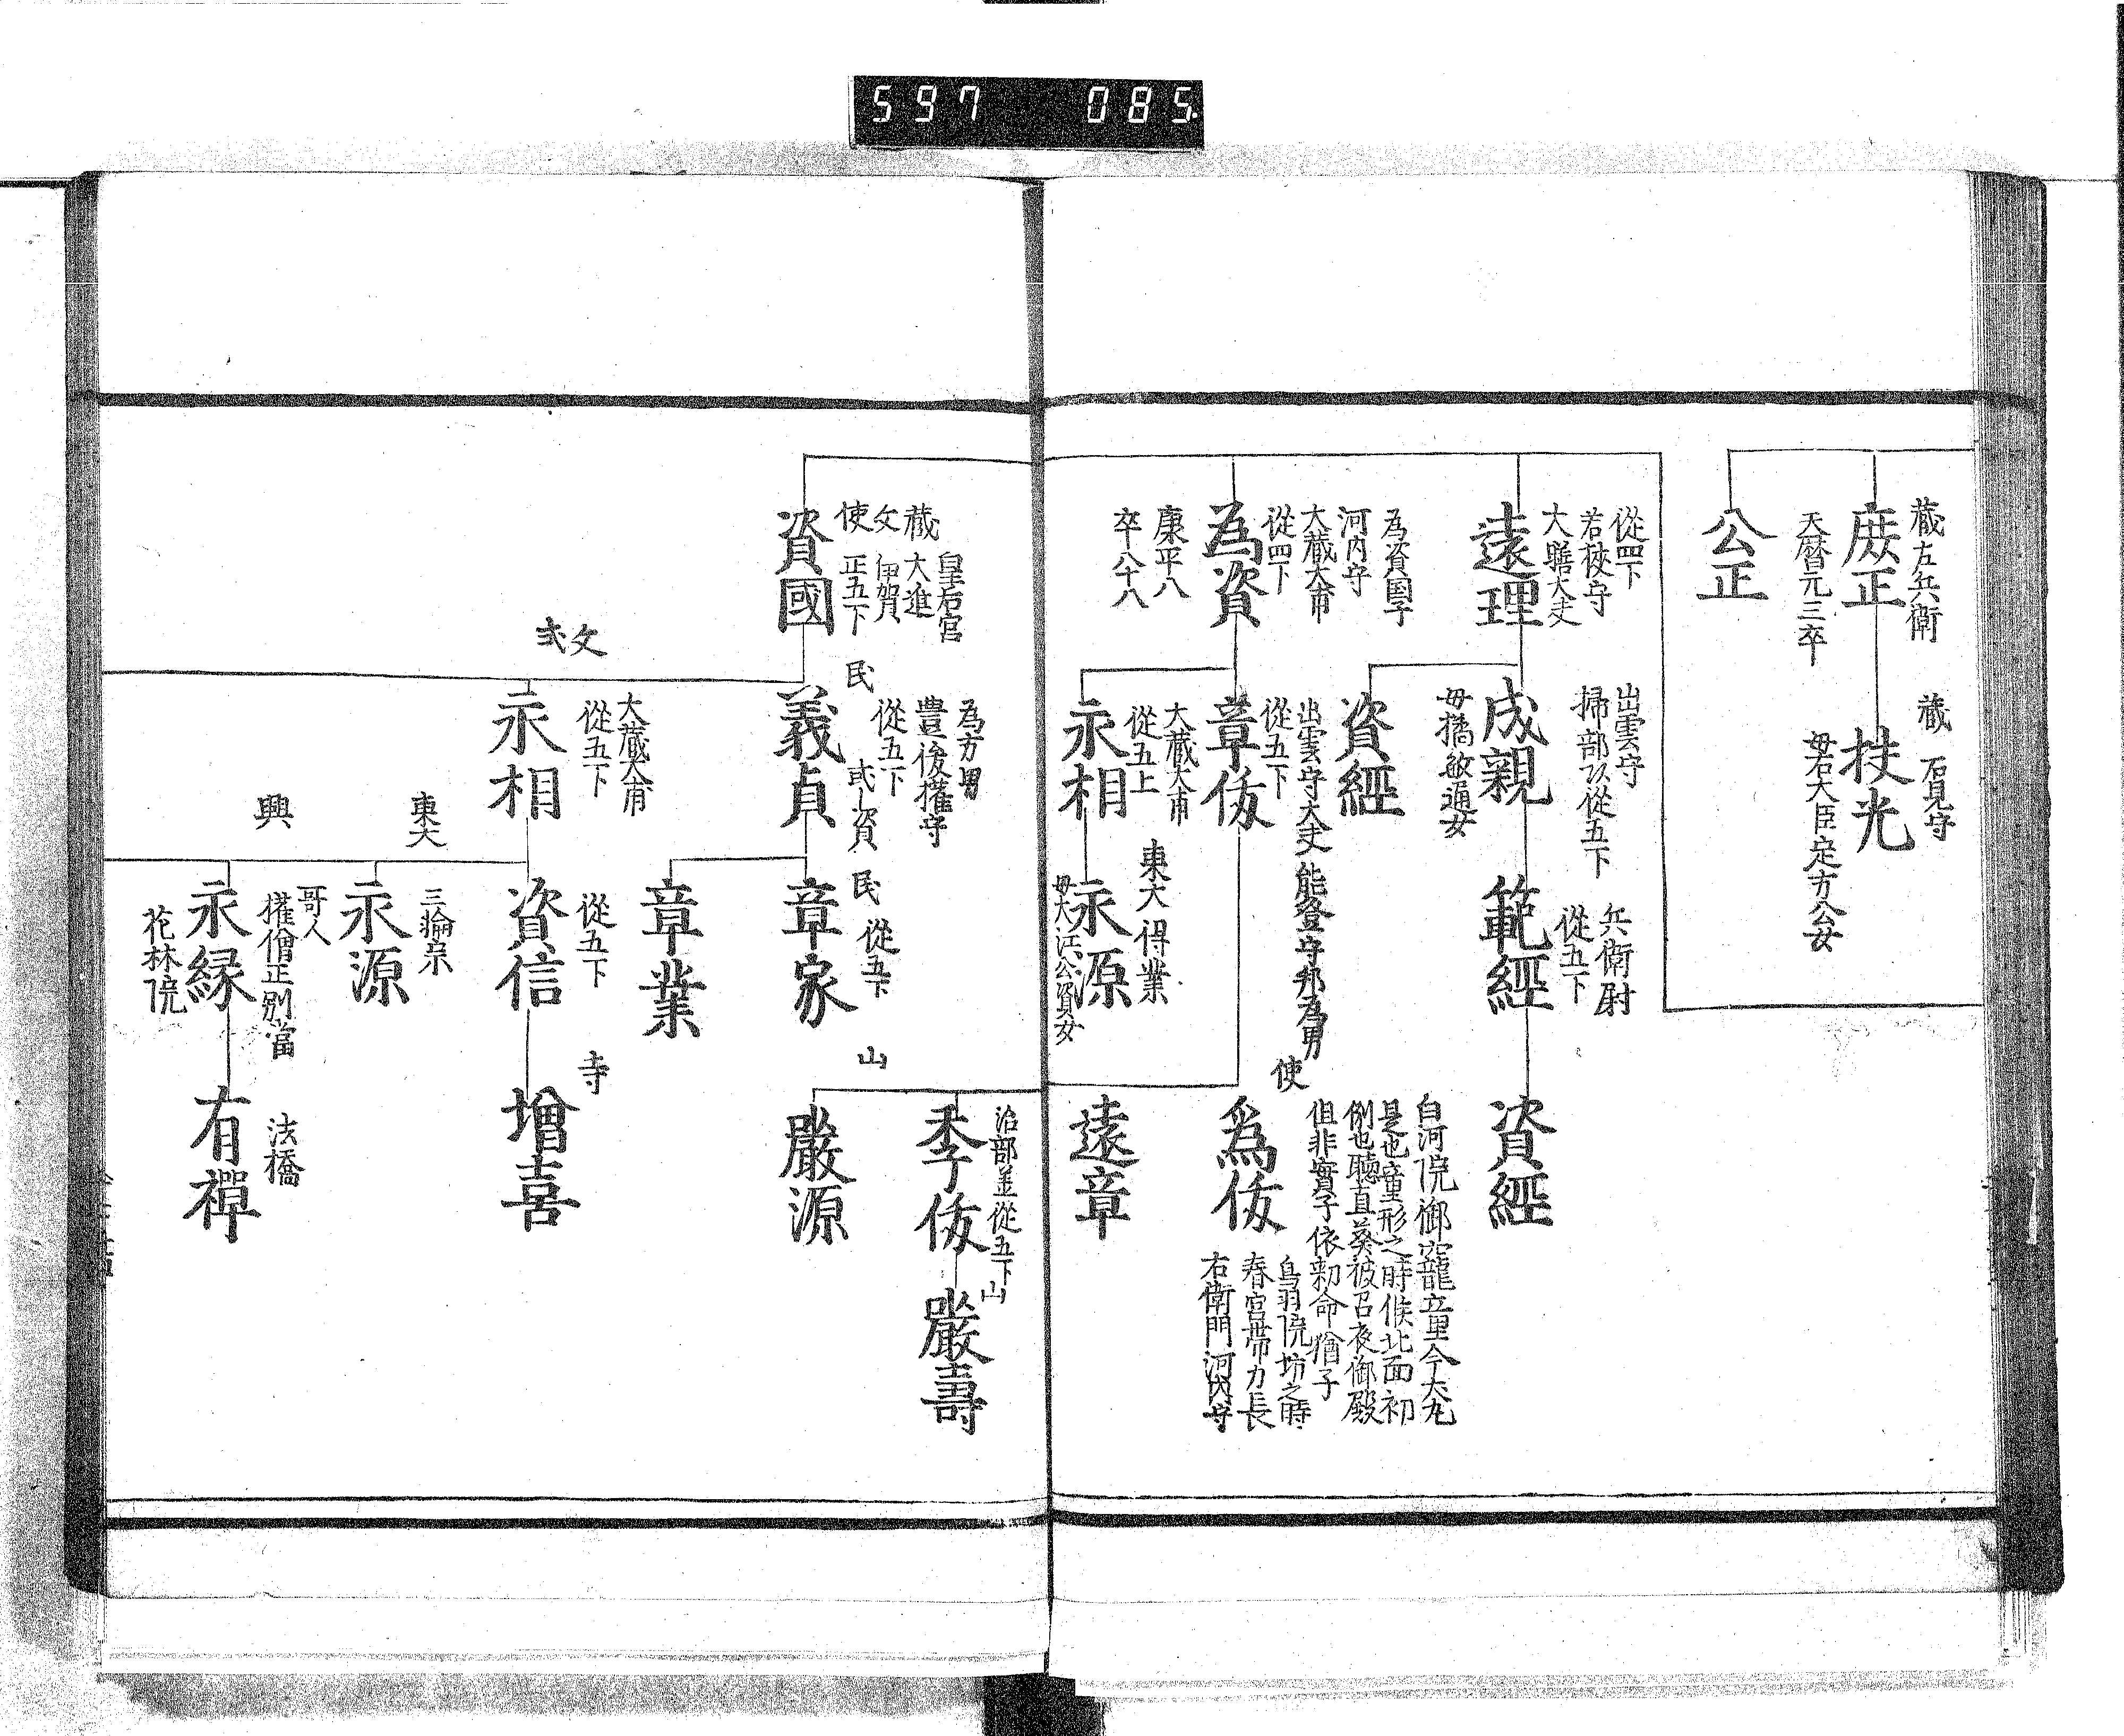 597 085
蔵左兵衛
庶正
天暦元三卒
蔵
石見守
扶光
母右大臣定方公女
公正
從四下
若狹守
大膳大夫
遠理
出雲守
掃部从從五下
成親
母橘敏通女
兵衛尉
從五下
範經
資經
資經
為資国子
河内守
大蔵大甫
從四下
為資
康平八
卒八十八
出雲守大夫能登守邦為男
從五下
章俊
使
白河院御寵童里今犬丸
是也童形之時候北面初
例也聴直葵被召夜御殿
但非實子依勅命猶子
為俊
鳥羽院坊之時
春宮帯刀長
右衛門河内守
遠章
大蔵大甫
從五上
永相
東大得業
永源
母大江公資女
治部並從五下
季俊
山
嚴壽
山
嚴源
皇后宮
蔵大進
文伊賀
使正五下
資國
為方男
豊後權守
民從五下
義貞
或資
民從五下
章家
章業
文
或
大蔵大甫
從五下
永相
從五下
資信
寺
増喜
東大
三論宗
永源
興
哥人
權僧正別當
永縁
花林院
法橋
有禪